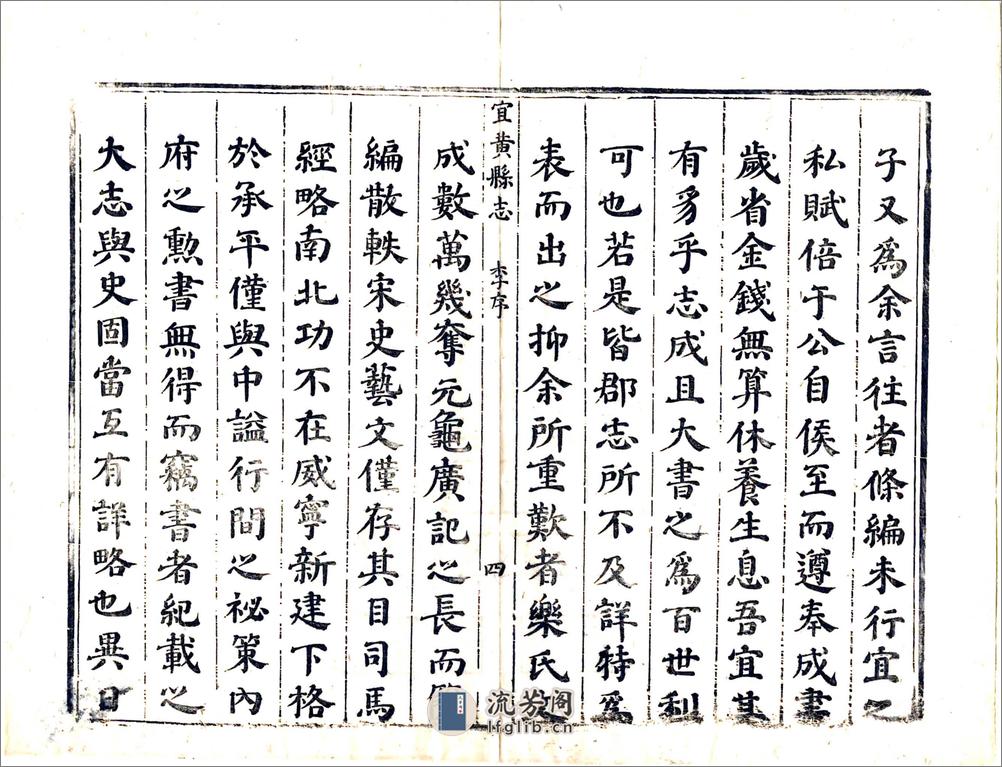 子又爲余言往者條編未行宜之
私賦倍于公自侯至而遵奉成書
歲省金錢無算休養生息吾宜其
有豸乎志成且大書之爲百世利
可也若是皆郡志所不及詳特爲
表而出之抑余所重歎者樂氏
宜黄縣志 李序 四
成數萬幾奪元龜廣記之長而
編散軼宋史藝文僅存其目司馬
經略南北功不在威寧新建下格
於承平僅與中謚行間之祕策内
府之勲書無得而竊書者紀載之
大志與史固當互有詳略也異日
流芳阁
lfglib.cn